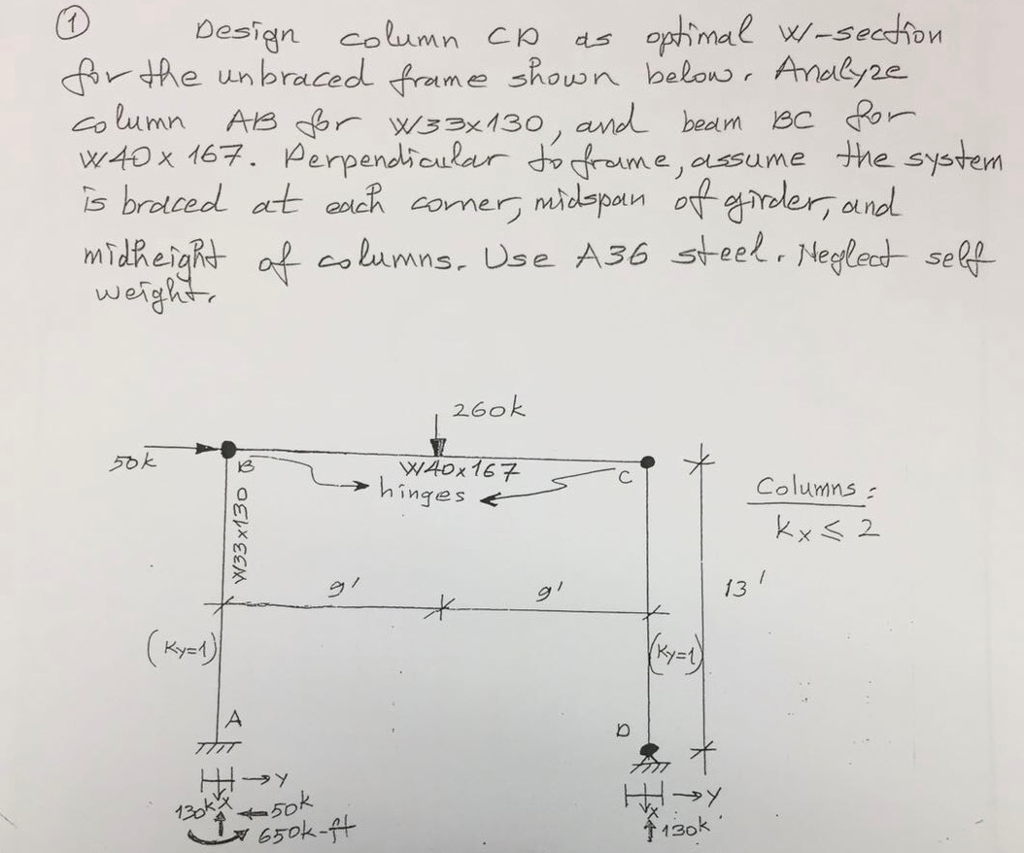 ① Design column CD as optimal W-section
for the unbraced frame shown below. Analyze
column AB for W33x130, and beam BC for
W40x167. Perpendicular to frame, assume the system
is braced at each corner, midspan of girder, and
midheight of columns. Use A36 steel. Neglect self
weight.
260k
50k
B
W40x167
C
hinges
Columns:
Kx ≤ 2
W33x130
9'
9'
13'
(Ky=1)
(Ky=1)
A
D
→Y
→Y
130k X ←50k
X
650k-ft
130k